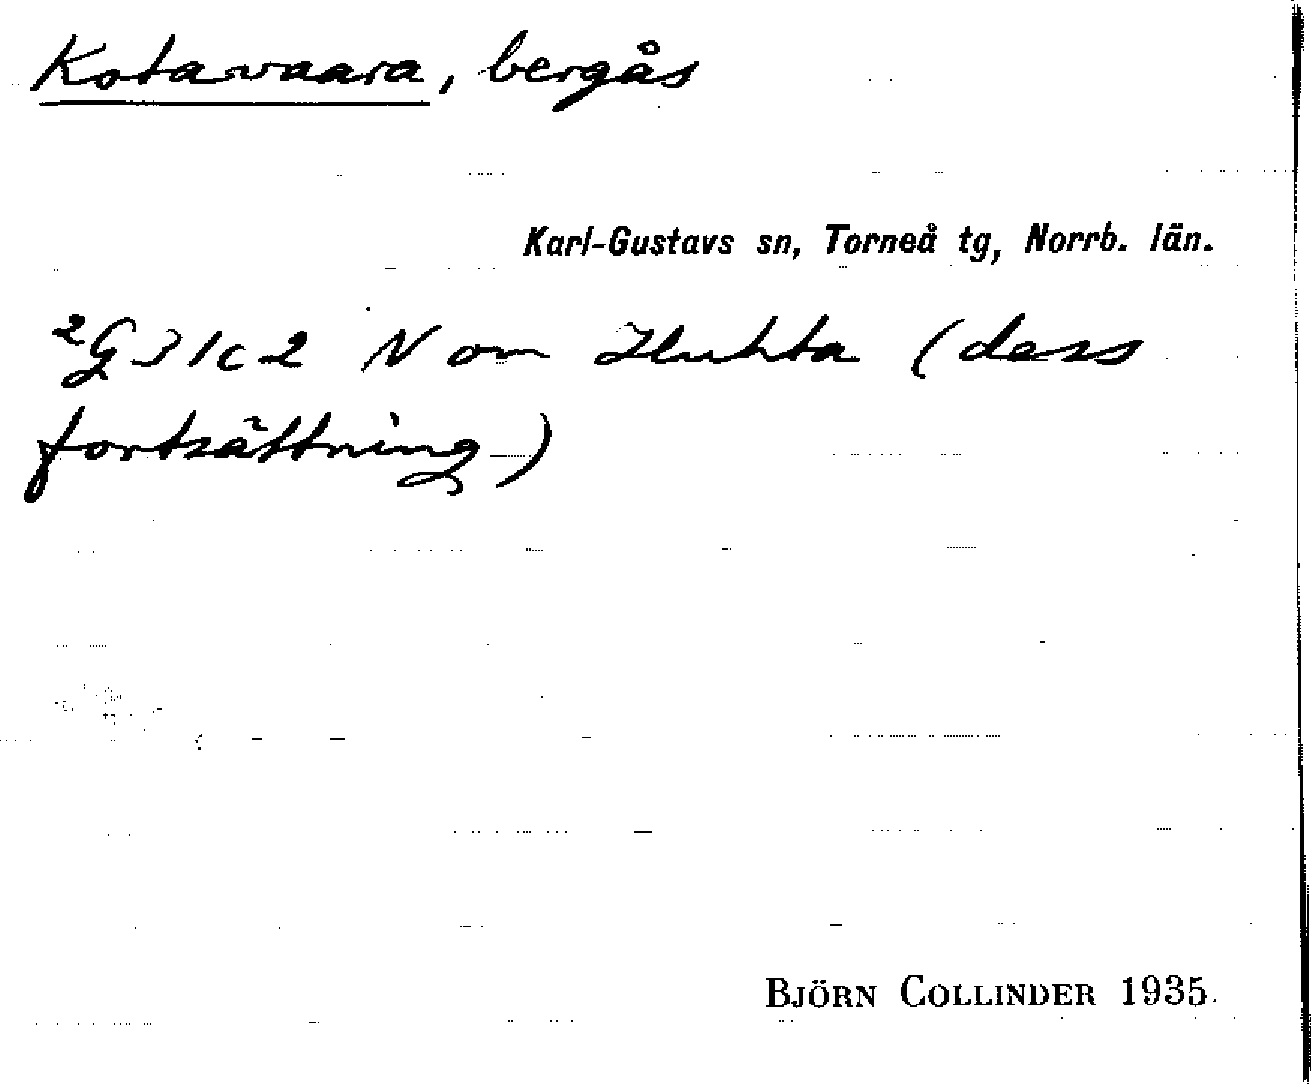 Kotavaara, bergås
Karl-Gustavs sn, Torneå tg, Norrb. län.
²G31c2 N om Huhta (dess
fortsättning)
BJÖRN COLLINDER 1935.